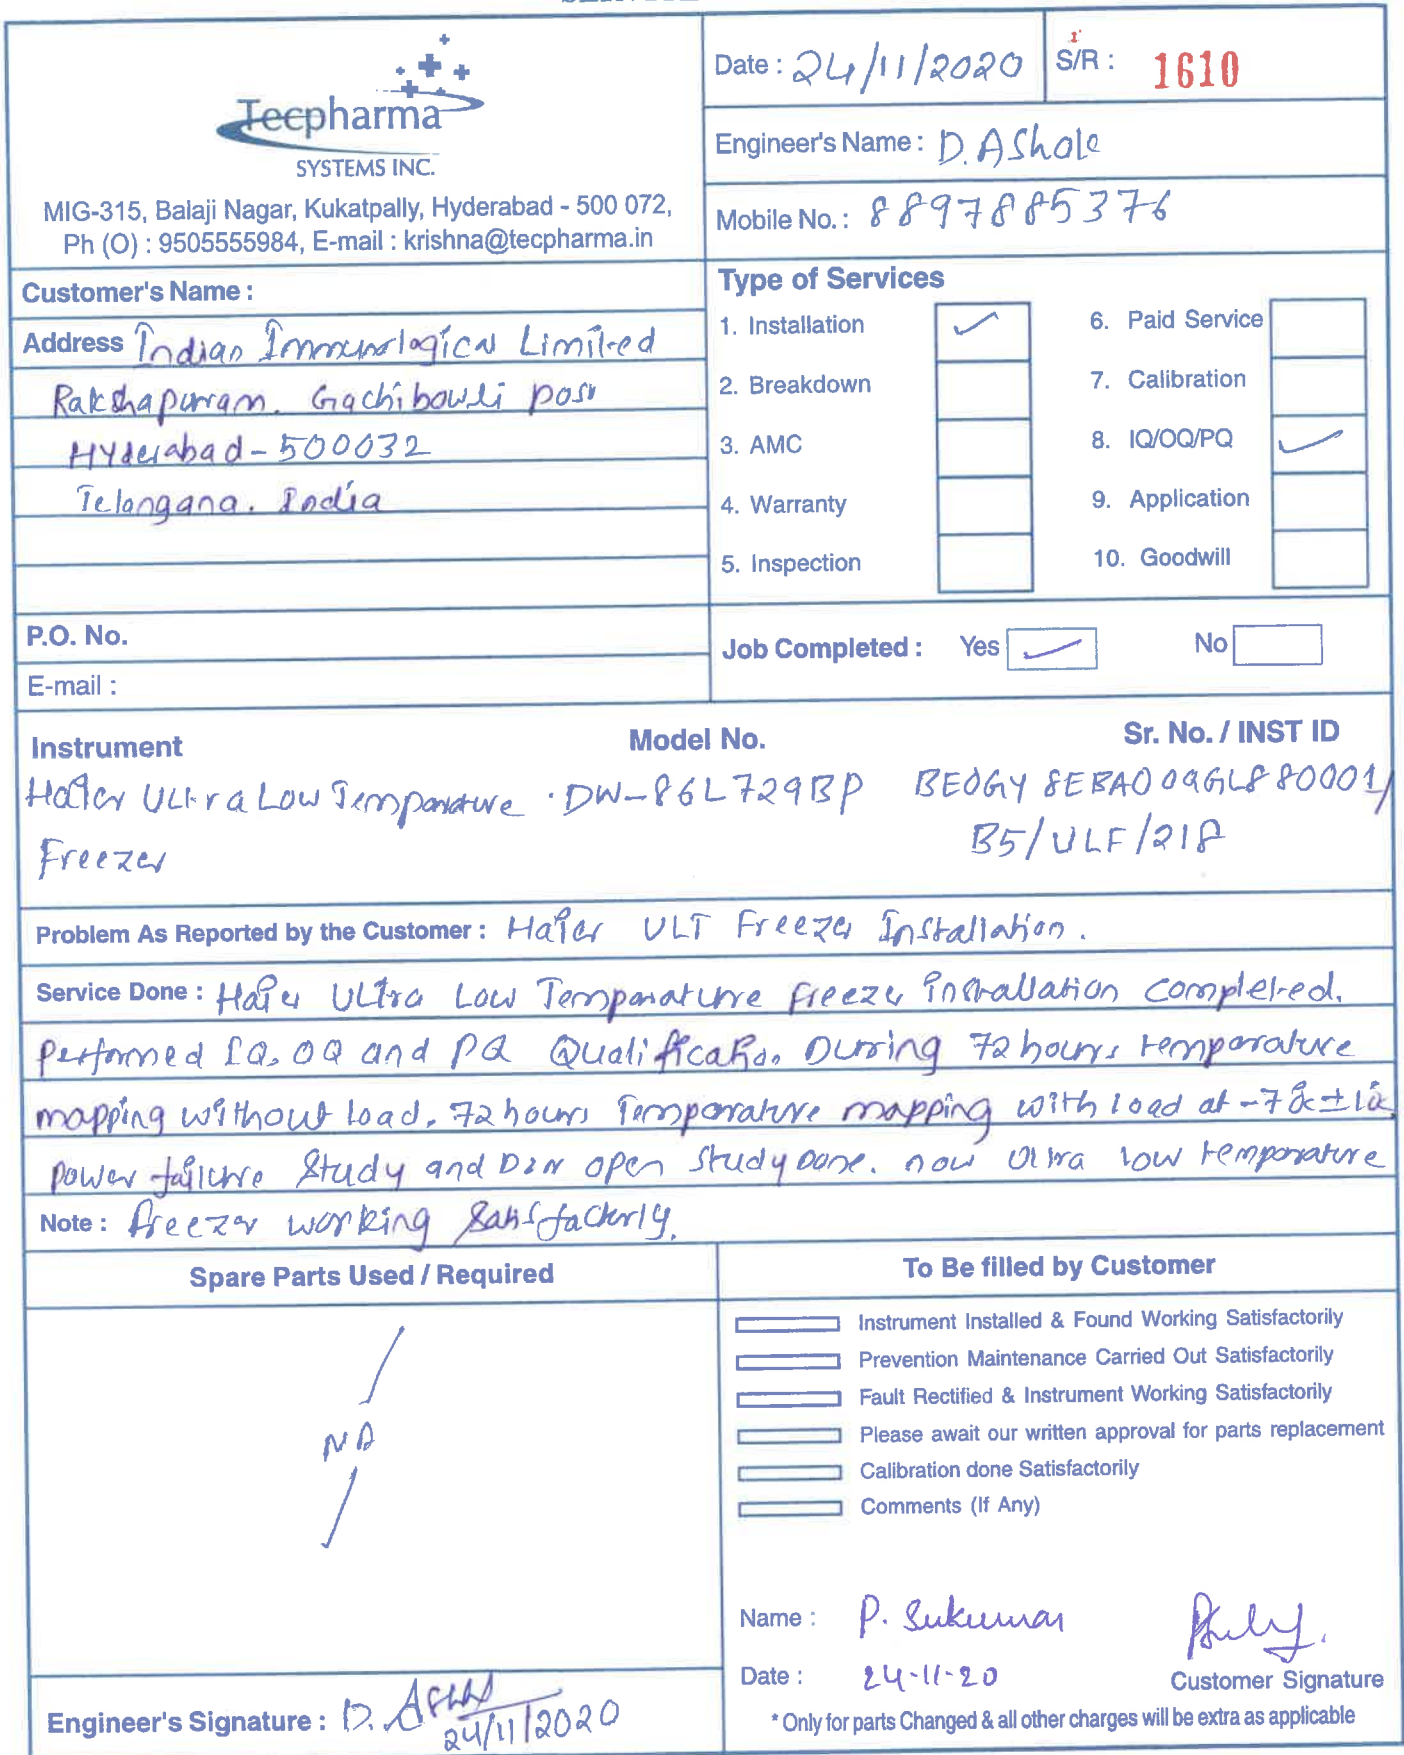 Tecpharma
SYSTEMS INC.
MIG-315, Balaji Nagar, Kukatpally, Hyderabad - 500 072,
Ph (O) : 9505555984, E-mail : krishna@tecpharma.in
Date : 24/11/2020
S/R : 1610
Engineer's Name : D. AShok
Mobile No. : 8897885376
Customer's Name :
Address Indian Immunological Limited
Rakshapuram. Gachibowli post
HYderabad - 500032
Telangana. India
P.O. No.
E-mail :
Type of Services
1. Installation ✓
2. Breakdown
3. AMC
4. Warranty
5. Inspection
6. Paid Service
7. Calibration
8. IQ/OQ/PQ ✓
9. Application
10. Goodwill
Job Completed : Yes ✓ No
Instrument Model No. Sr. No. / INST ID
Haier ULtra Low Temparature DW-86L729BP BE0GY8EBA009GL880001/
Freezer B5/ULF/218
Problem As Reported by the Customer : Haier ULT Freezer Installation.
Service Done : Haier ULtra Low Temparature freezer installation completed.
performed IQ, OQ and PQ Qualification During 72 hours temparature
mapping without load. 72 hours Temparature mapping with load at
power failure study and open study done. now Ultra low temparature
Note : freezer working satisfactorly.
Spare Parts Used / Required
NA
Engineer's Signature : D. Ashok
24/11/2020
To Be filled by Customer
Instrument Installed & Found Working Satisfactorily
Prevention Maintenance Carried Out Satisfactorily
Fault Rectified & Instrument Working Satisfactorily
Please await our written approval for parts replacement
Calibration done Satisfactorily
Comments (If Any)
Name : P. Sukumar
Date : 24-11-20
Customer Signature
* Only for parts Changed & all other charges will be extra as applicable